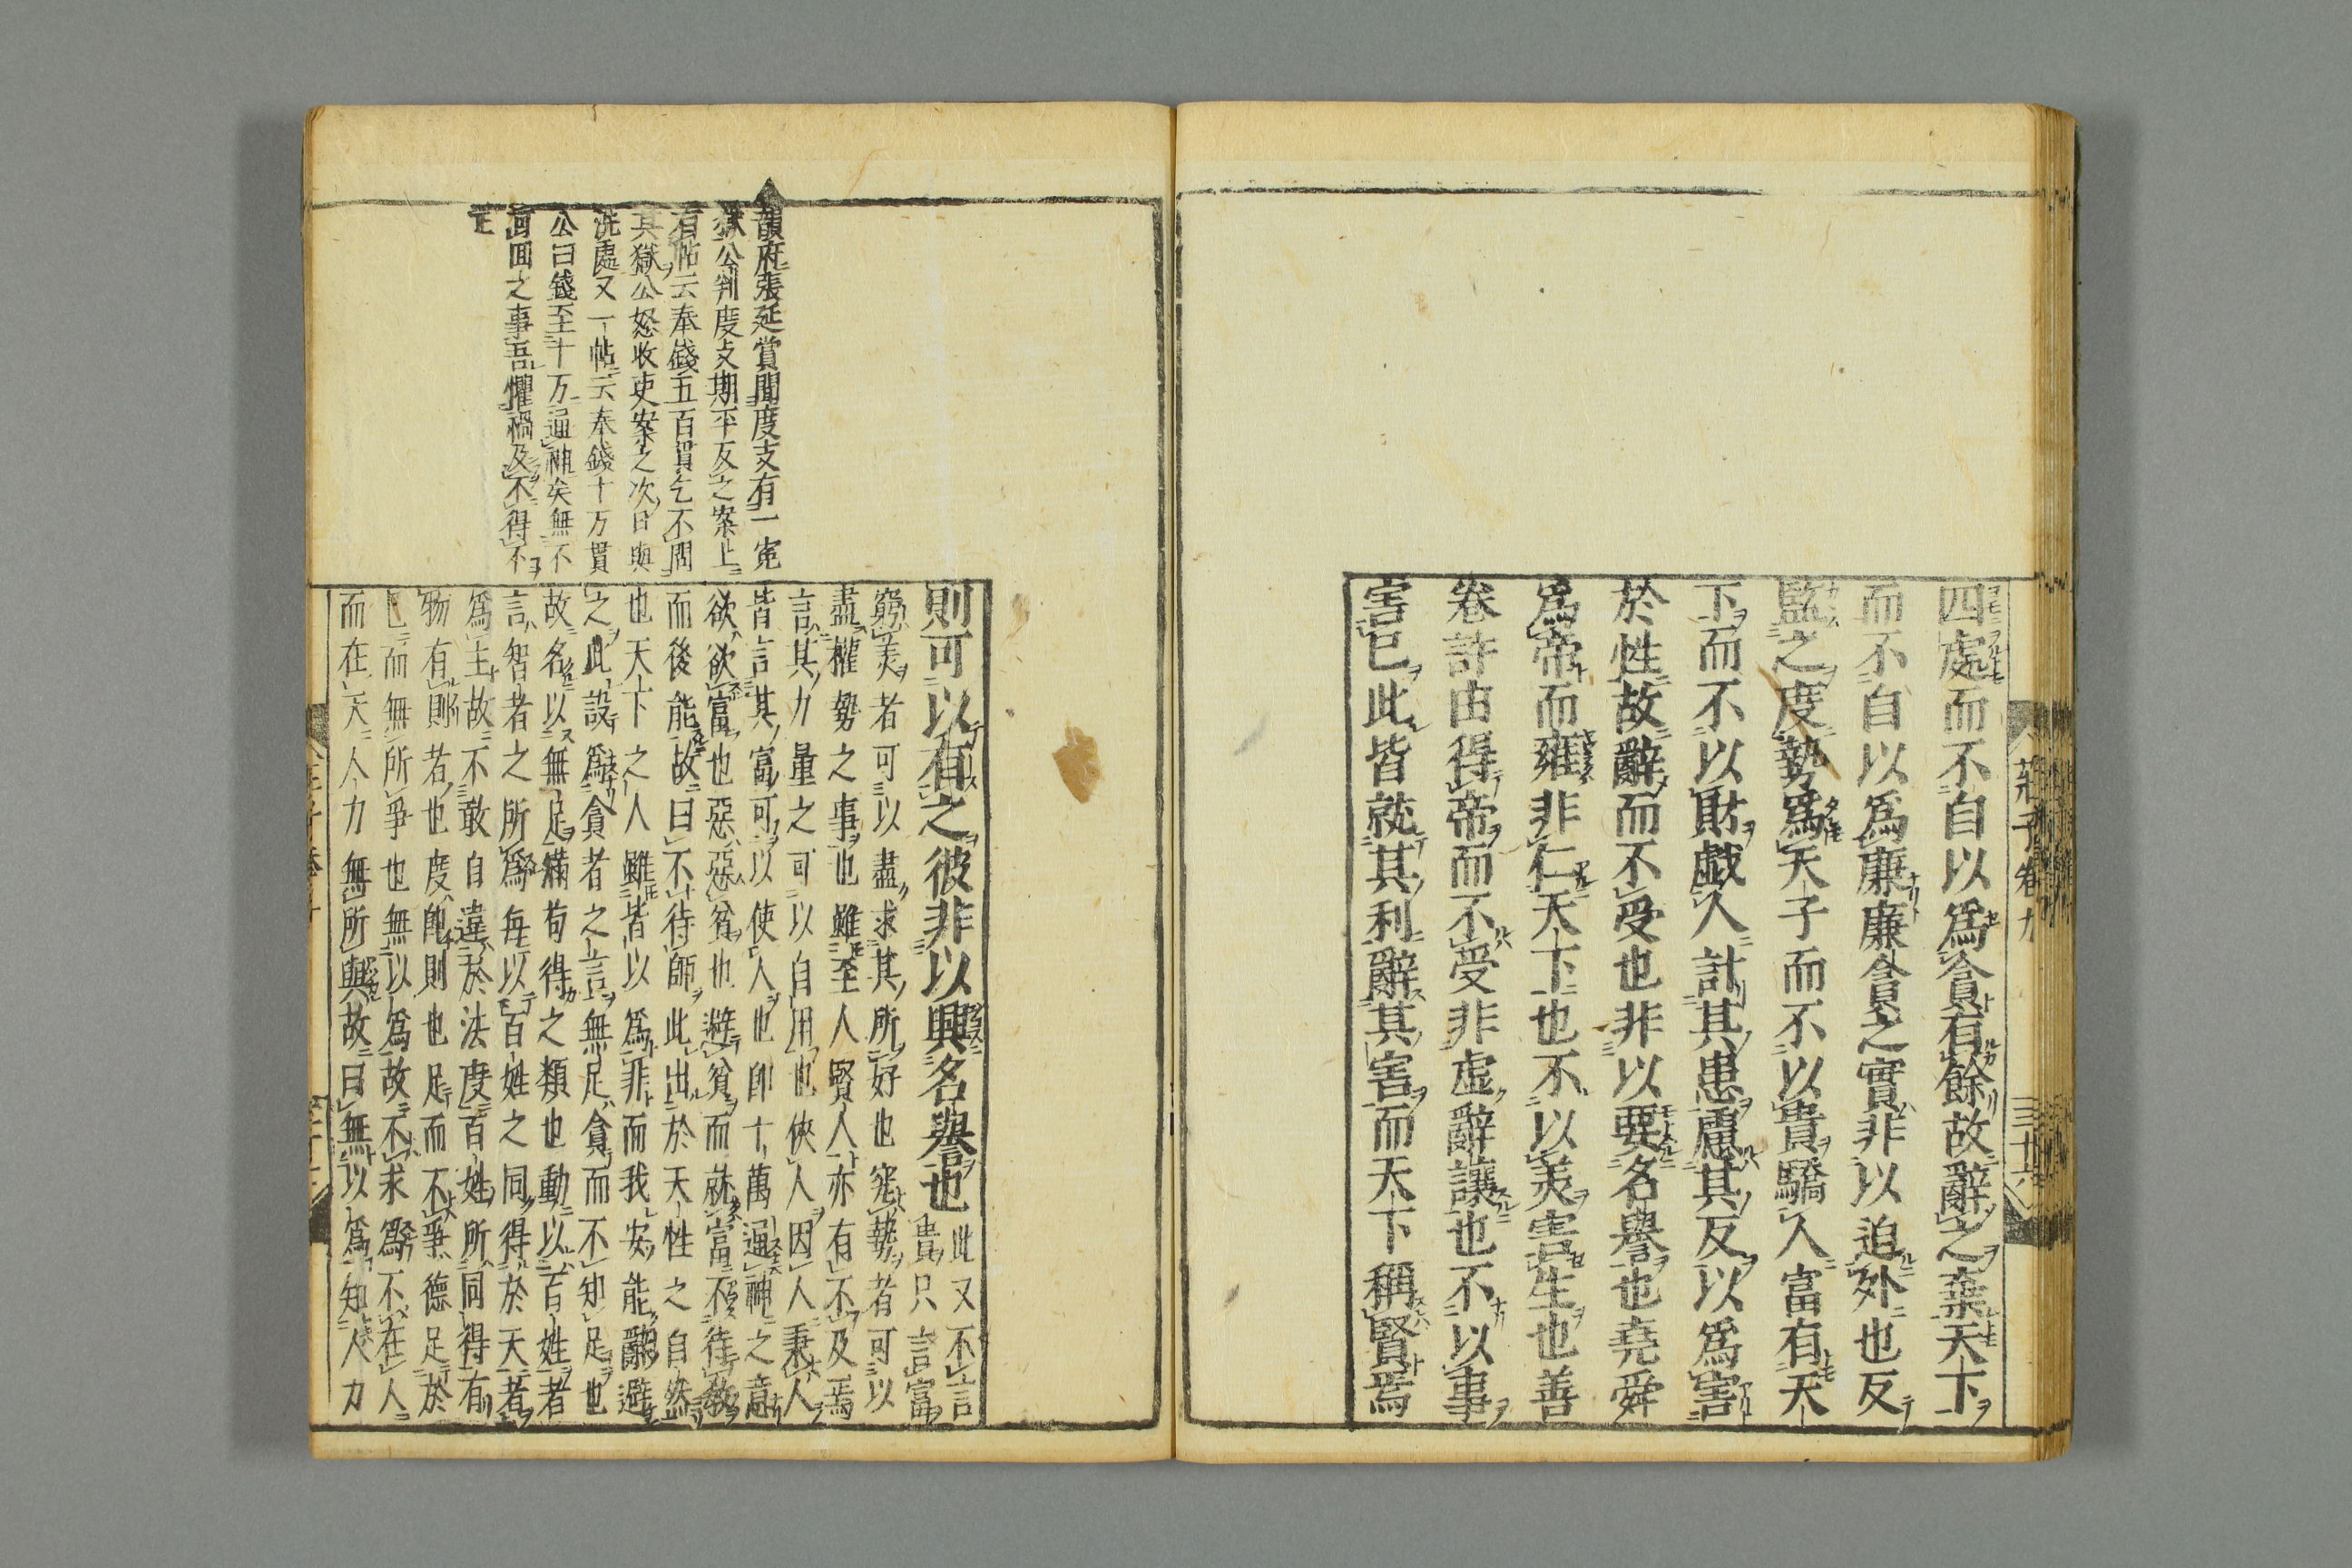 四處而不自以爲貪有餘故辭之棄天下
而不自以爲廉廉貪之實非以迫外也反
監之度勢爲天子而不以貴驕人富有天
下而不以財戯人計其患慮其反以爲害
於性故辭而不受也非以要名譽也堯舜
爲帝而雍非仁天下也不以美害生也善
卷許由得帝而不受非虛辭讓也不以事
害已此皆就其利辭其害而天下稱賢焉
莊子卷九
三十六
韻府張延賞聞度支有一寃
獄公判度支期平反之案上
有帖云奉錢五百貫乞不問
其獄公怒收吏案之次日與
洗處又一帖云奉錢十万貫
公曰錢至十万通神矣無不
可回之事吾懼禍及不得不
止
則可以有之彼非以興名譽也此又不言
貴只言富
窮美者可以盡求其所好也究勢者可以
盡權勢之事也雖至人賢人亦有不及焉
言其力量之可以自用也俠人因人秉人
皆言其富可以使人也即十萬通神之意
欲欲富也惡惡貧也避貧而就富不待教
而後能故曰不待師此出於天性之自然
也天下之人雖皆以爲非而我安能辭避
之此設爲貪者之言無足貪而不知足也
故名以無足滿苟得之類也動以百姓者
言智者之所爲每以百姓之同得於天者
爲主故不敢自違於法度百姓所同得有
物有則者也度即則也足而不爭德足於
已而無所爭也無以爲故不求爲不在人
而在天人力無所與故曰無以爲知人力